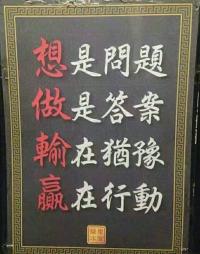 想是問題
做是答案
輸在猶豫
贏在行動